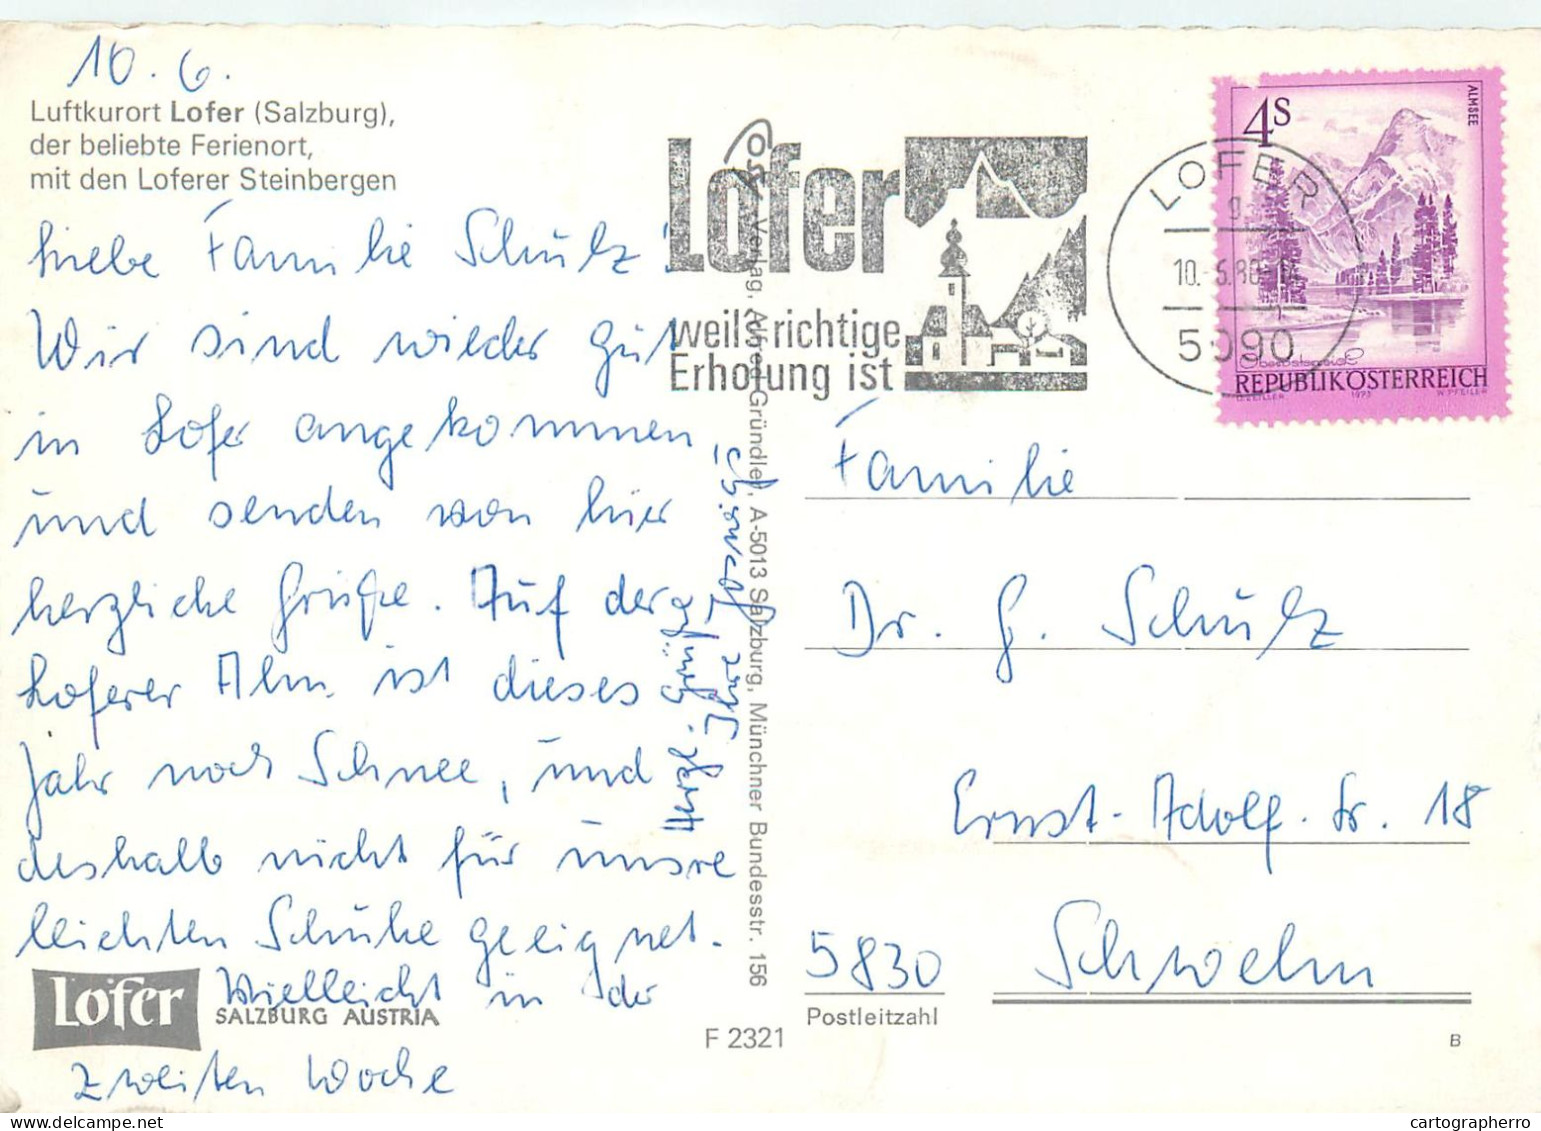 10.6.
Luftkurort Lofer (Salzburg),
der beliebte Ferienort,
mit den Loferer Steinbergen
Liebe Familie Schulz!
Wir sind wieder gut
in Lofer angekommen,
und senden von hier
herzliche Grüße. Auf der
Loferer Alm ist dieses
Jahr noch Schnee, und
deshalb nicht für unsre
leichten Schuhe geeignet.
Vielleicht in der
zweiten Woche
Herzl. Grüße
Ihre
Lofer
SALZBURG AUSTRIA
F 2321
Verlag, Alfred Gründler, A-5013 Salzburg, Münchner Bundesstr. 156
Lofer
weil's richtige
Erholung ist
LOFER
g
10.-6.80-14
5090
4S
ALMSEE
Oberösterreich
REPUBLIK ÖSTERREICH
O. ZEILLER 1973 W. PFEILER
Familie
Dr. G. Schulz
Ernst-Adolf-Str. 18
5830 Schwelm
Postleitzahl
B
cartographerro